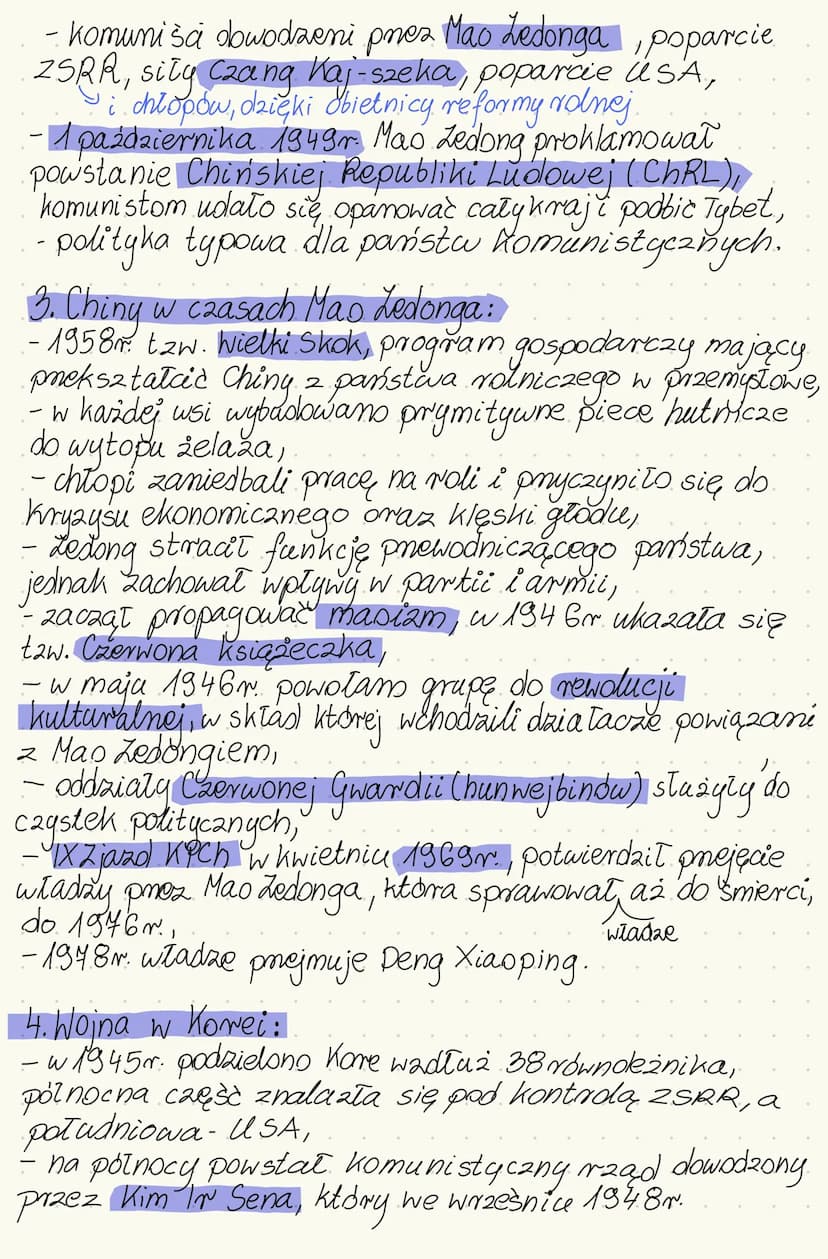 - komuniści dowodzeni przez Mao Zedonga, poparcie
ZSRR, siły Czang Kaj-szeka, poparcie USA,
i chłopów, dzięki obietnicy reformy rolnej
- 1 października 1949r. Mao Zedong proklamował
powstanie Chińskiej Republiki Ludowej (ChRL),
komunistom udało się opanować cały kraj i podbić Tybet,
- polityka typowa dla państw komunistycznych.
3. Chiny w czasach Mao Zedonga:
- 1958r. tzw. Wielki Skok, program gospodarczy mający
przekształcić Chiny z państwa rolniczego w przemysłowe,
- w każdej wsi wybudowano prymitywne piece hutnicze
do wytopu żelaza,
- chłopi zaniedbali pracę na roli i przyczyniło się do
kryzysu ekonomicznego oraz klęski głodu,
- Zedong stracił funkcję przewodniczącego państwa,
jednak zachował wpływy w partii i armii,
- zaczął propagować maoizm, w 1946r. ukazała się
tzw. Czerwona książeczka,
- w maju 1946r. powołano grupę do rewolucji
kulturalnej, w skład której wchodzili działacze powiązani
z Mao Zedongiem,
- oddziały Czerwonej Gwardii (hunwejbinów) służyły do
czystek politycznych,
- IX Zjazd KPCh w kwietniu 1969r., potwierdził przejęcie
władzy przez Mao Zedonga, która sprawował aż do śmierci,
władze
do 1976r.,
- 1978r. władze przejmuje Deng Xiaoping.
4. Wojna w Korei:
- w 1945r. podzielono Kore wzdłuż 38 równoleżnika,
północna część znalazła się pod kontrolą ZSRR, a
południowa - USA,
- na północy powstał komunistyczny rząd dowodzony
przez Kim Ir Sena, który we wrześniu 1948r.